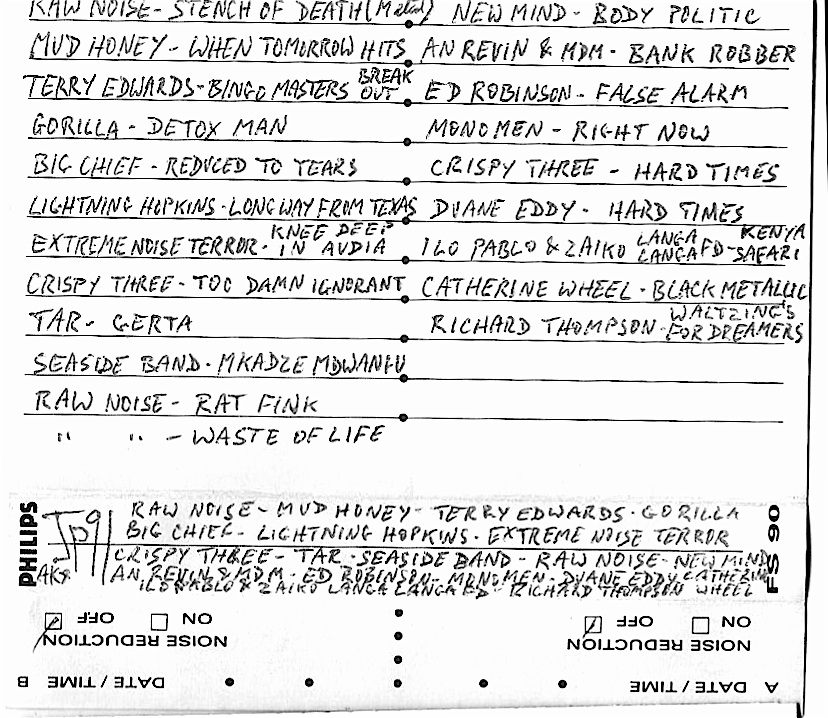 RAW NOISE - STENCH OF DEATH (Metal)
MUD HONEY - WHEN TOMORROW HITS
TERRY EDWARDS - BINGO MASTERS BREAK OUT
GORILLA - DETOX MAN
BIG CHIEF - REDUCED TO TEARS
LIGHTNING HOPKINS - LONG WAY FROM TEXAS
EXTREME NOISE TERROR - KNEE DEEP IN AUDIA
CRISPY THREE - TOO DAMN IGNORANT
TAR - GERTA
SEASIDE BAND - MKADZE MDWANFU
RAW NOISE - RAT FINK
" " - WASTE OF LIFE
NEW MIND - BODY POLITIC
AN REVIN & MDM - BANK ROBBER
ED ROBINSON - FALSE ALARM
MONOMEN - RIGHT NOW
CRISPY THREE - HARD TIMES
DUANE EDDY - HARD TIMES
ILO PABLO & ZAIKO LANGA LANGA FD - KENYA SAFARI
CATHERINE WHEEL - BLACK METALLIC
RICHARD THOMPSON - WALTZING'S FOR DREAMERS
PHILIPS
FS 90
RAW NOISE - MUD HONEY - TERRY EDWARDS - GORILLA
BIG CHIEF - LIGHTNING HOPKINS - EXTREME NOISE TERROR
CRISPY THREE - TAR - SEASIDE BAND - RAW NOISE - NEW MIND
AN REVIN & MDM - ED ROBINSON - MONOMEN - DUANE EDDY CATHERINE
ILO PABLO & ZAIKO LANGA LANGA FD - RICHARD THOMPSON WHEEL
NOISE REDUCTION
ON OFF
NOISE REDUCTION
ON OFF
A DATE / TIME
B DATE / TIME